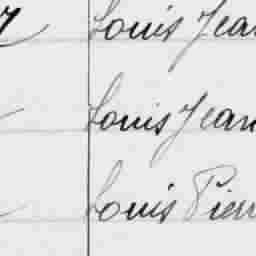 7 Louis Jean
Louis Jean
Louis Pierr